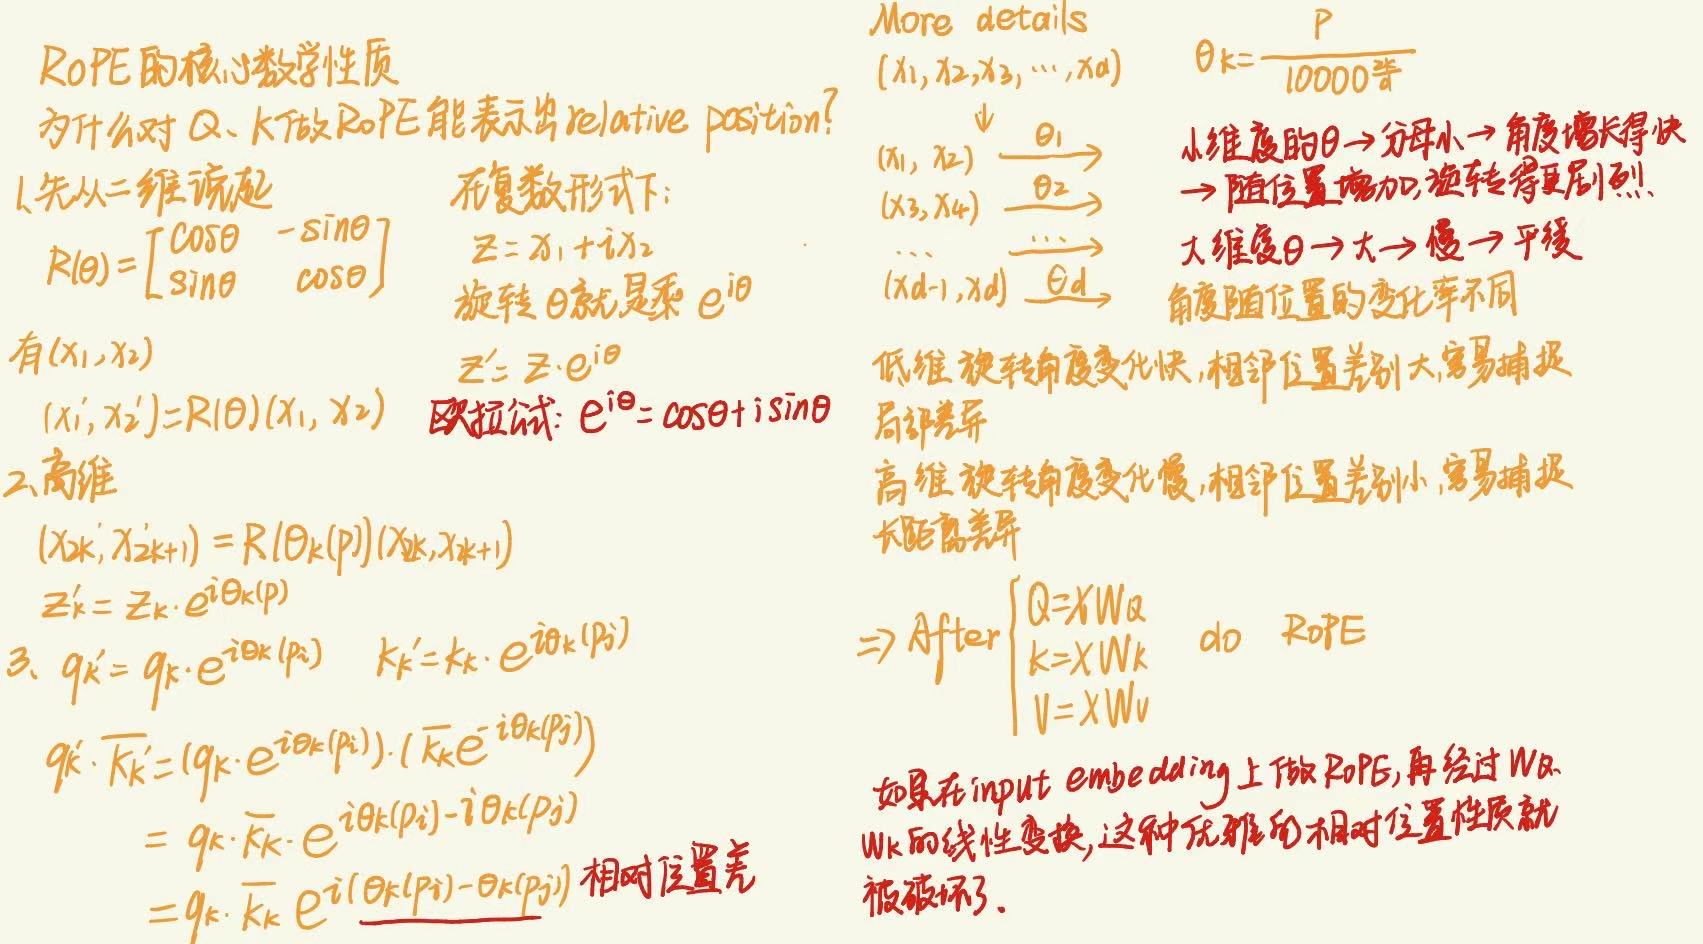 RoPE的核心数学性质
为什么对 Q、K做RoPE能表示出relative position?
1、先从二维说起
R(θ) = [cosθ -sinθ
sinθ cosθ]
有(x1, x2)
(x1', x2') = R(θ)(x1, x2)
在复数形式下:
z = x1 + ix2
旋转 θ就是乘 e^{iθ}
z' = z·e^{iθ}
欧拉公式: e^{iθ} = cosθ + i sinθ
2、高维
(x2k', x'2k+1) = R(θk(p))(x2k, x2k+1)
zk' = zk·e^{iθk(p)}
3、 qk' = qk·e^{iθk(pi)} kk' = kk·e^{iθk(pj)}
qk'·\overline{kk'} = (qk·e^{iθk(pi)})·(\overline{kk}e^{-iθk(pj)})
= qk·\overline{kk}·e^{iθk(pi)-iθk(pj)}
= qk·\overline{kk} e^{i(θk(pi)-θk(pj))} 相对位置差
More details
(x1, x2, x3, ···, xd)
↓
(x1, x2) θ1 →
(x3, x4) θ2 →
··· ··· →
(xd-1, xd) θd →
θk = P / 10000^{2k/d}
小维度的θ→分母小→角度增长得快
→随位置增加,旋转得更剧烈.
大维度θ→大→慢→平缓
角度随位置的变化率不同
低维 旋转角度变化快,相邻位置差别大,容易捕捉
局部差异
高维 旋转角度变化慢,相邻位置差别小,容易捕捉
长距离差异
⇒ After { Q=XWQ
K=XWK
V=XWV
do RoPE
如果在input embedding上做RoPE,再经过WQ、
WK的线性变换,这种优雅的相对位置性质就
被破坏了.